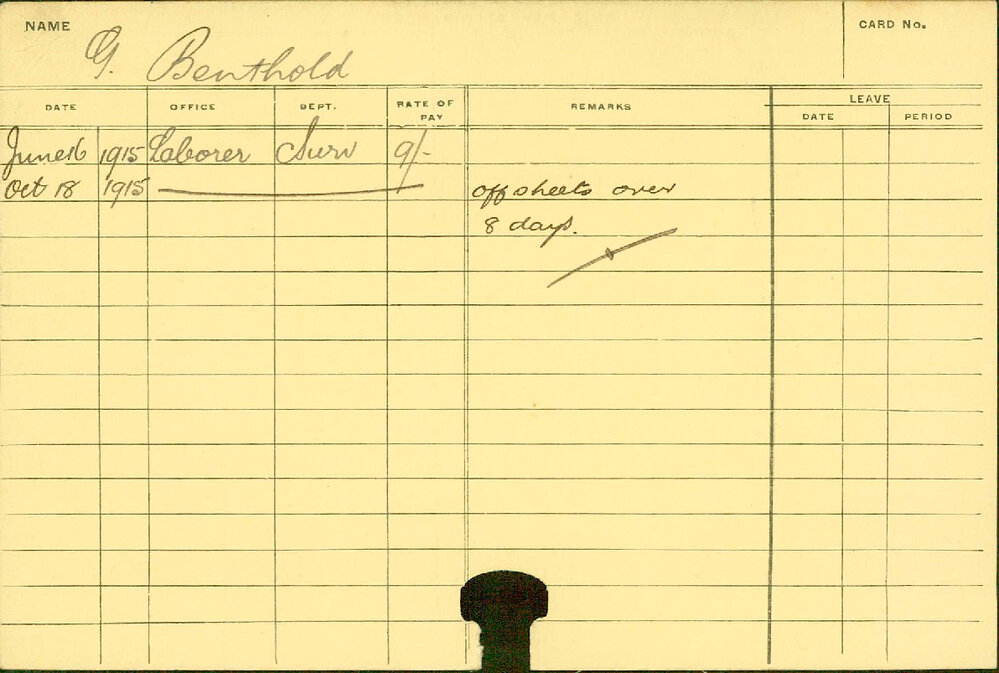 NAME G. Benthold CARD No.
DATE OFFICE DEPT. RATE OF PAY REMARKS LEAVE
DATE PERIOD
June 16 1915 Laborer Surv 9/-
Oct 18 1915 off sheets over
8 days.